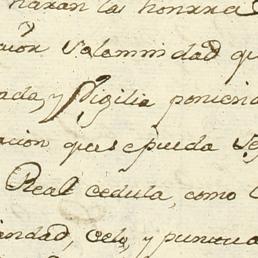 haran las honrras
cion solemnidad qu
ada, y Vigilia ponien
acion que se pueda se
Real cedula, como
ridad, celo, y puntua